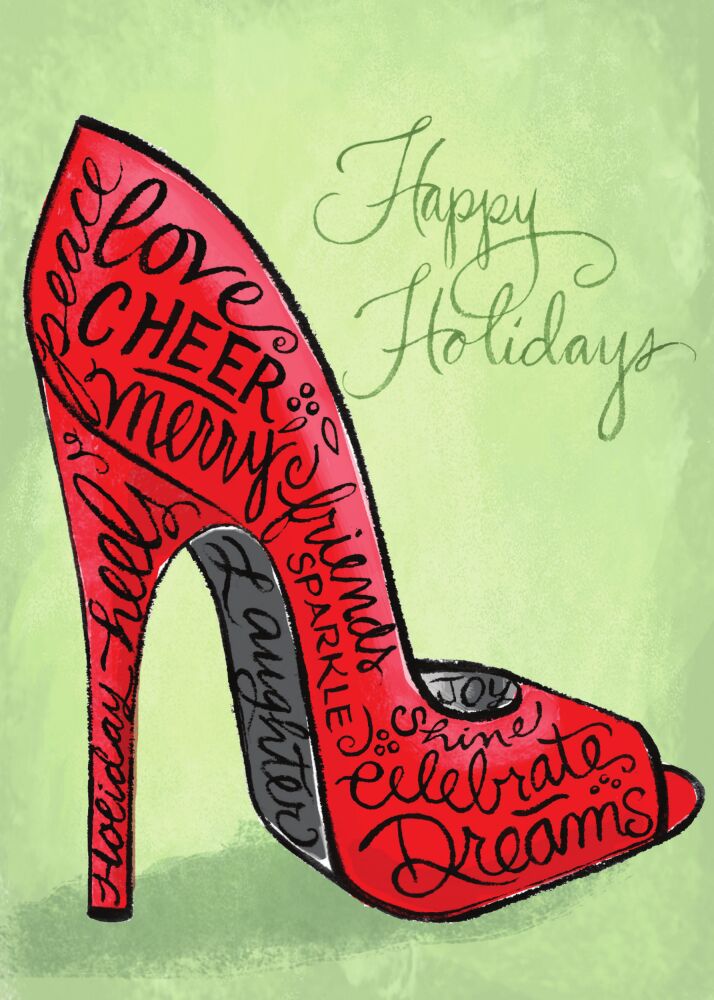 Happy
Holidays
peace
love
CHEER
merry
friends
SPARKLE
Holiday heels
Laughter
JOY
Shine
Celebrate
Dreams